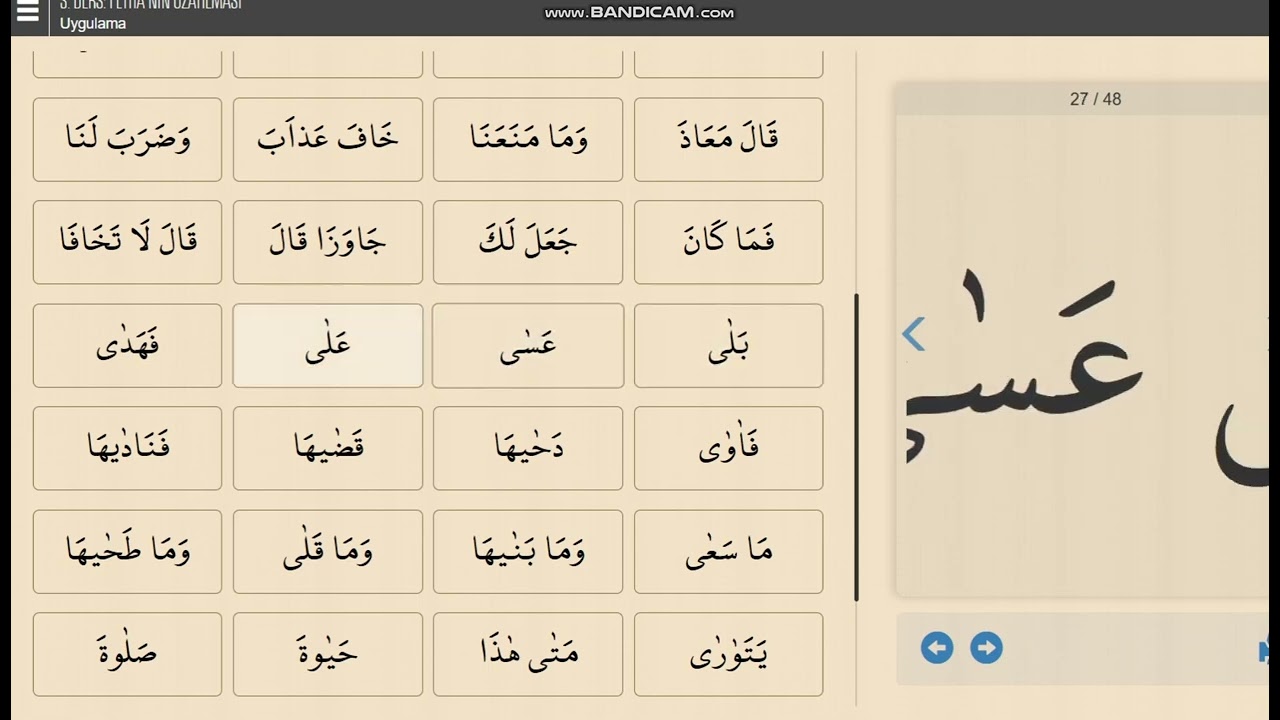 Uygulama
www.BANDICAM.com
27 / 48
قَالَ مَعَاذَ
وَمَا مَنَعَنَا
خَافَ عَذاَبَ
وَضَرَبَ لَنَا
فَمَا كَانَ
جَعَلَ لَكَ
جَاوَزَا قَالَ
قَالَ لَا تَخَافَا
بَلٰى
عَسٰى
عَلٰى
فَهَدٰى
فَاٰوٰى
دَحٰيهَا
قَضٰيهَا
فَنَادٰيهَا
مَا سَعٰى
وَمَا بَنٰيهَا
وَمَا قَلٰى
وَمَا طَحٰيهَا
يَتَوَارٰى
مَتٰى هٰذَا
حَيٰوةَ
صَلٰوةَ
عَسٰى